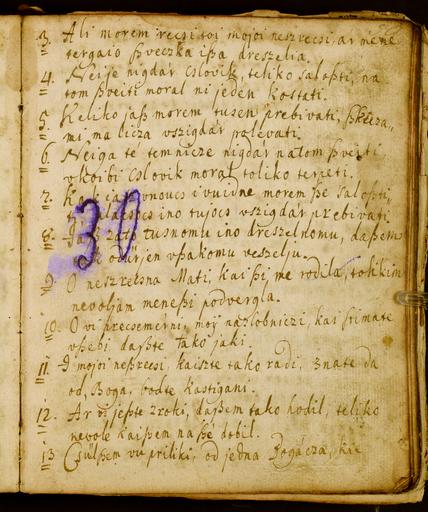 3. Ali morem recsi toi mojoi neszrecsi, ar mene
tergaio ßveczka ißa dreszelia.
4. Neije nigdar cslovik, teliko saloßti, na
tom ßveiti moral ni jeden kostati.
5. Keliko jaß morem tusen prebivati,
mi ma licza vszigdár polevati.
6. Neiga te temnicze nigdár natom ßveiti
vkoibi cslovik moral toliko terpeti.
7. vnoucs i vuidne morem ße saloßti,
ino tujocs vszigdár prebivati.
8. zato tusnomu ino dreszelnomu, daßem
odurjen vßakomu veszelju.
9. O neszrecsna Mati, kai ßi me rodila, tolikim
nevoljam meneßi podvergla.
10. O vi precsemerni, moij nazlobniczi, kai stimate
vßebi daßte tako jaki.
11. I mojoi neßrecsi, kaiszte tako radi, znate da
od Boga, bodte kastigani.
12. Ar jeßte zroki, daßem tako hodil, teliko
nevole kaißem na ße dobil.
13 Csülßem vu priliki, od jedna Bogácza, kie
30